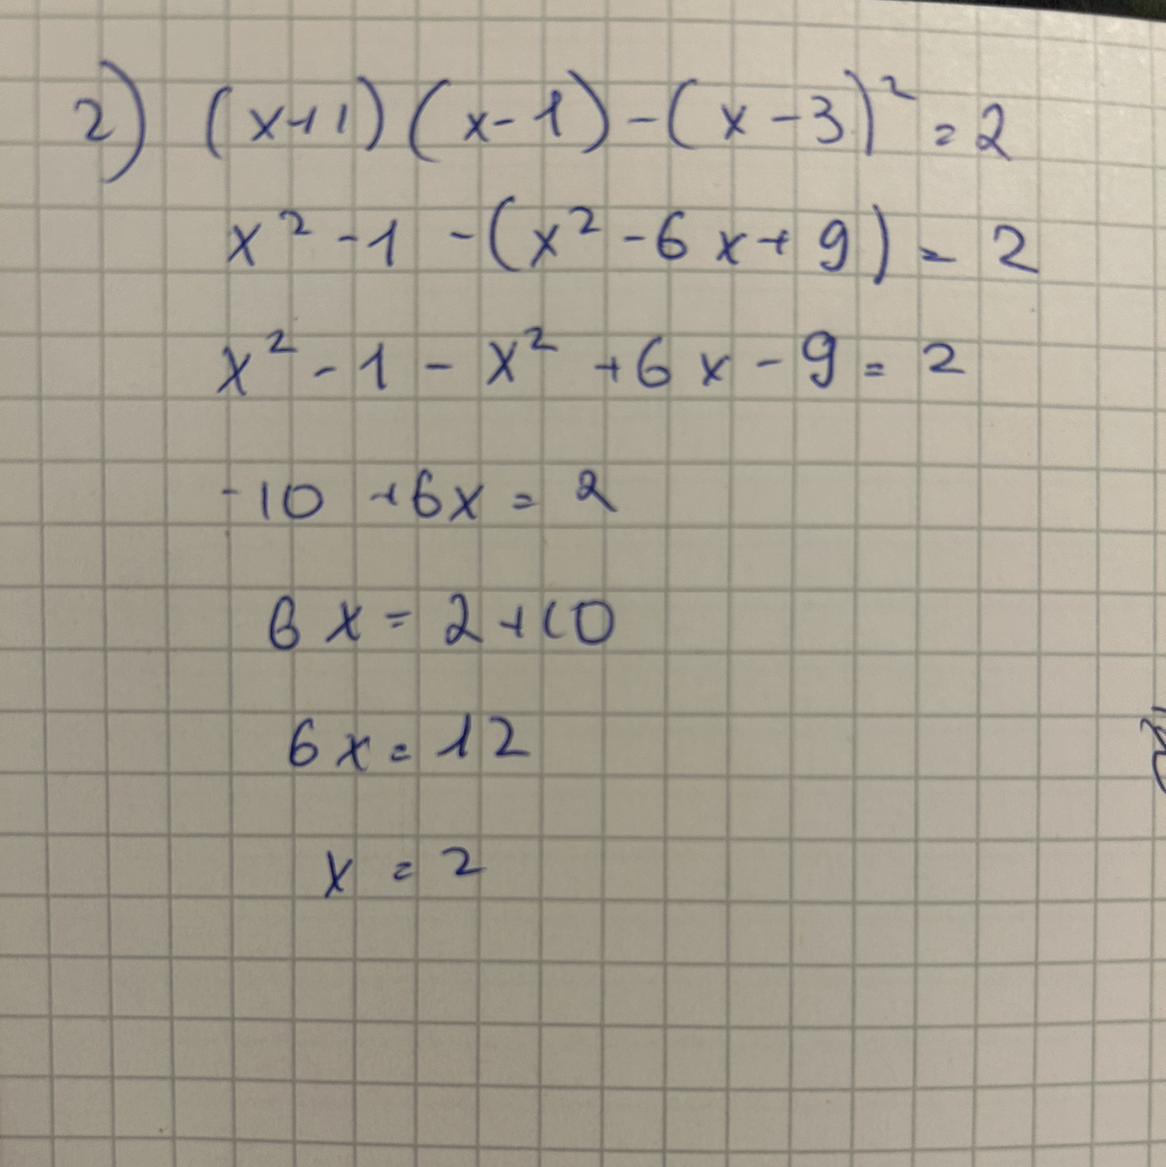 2) (x+1)(x-1)-(x-3)²=2
x²-1-(x²-6x+9)=2
x²-1-x²+6x-9=2
-10+6x=2
6x=2+10
6x=12
x=2